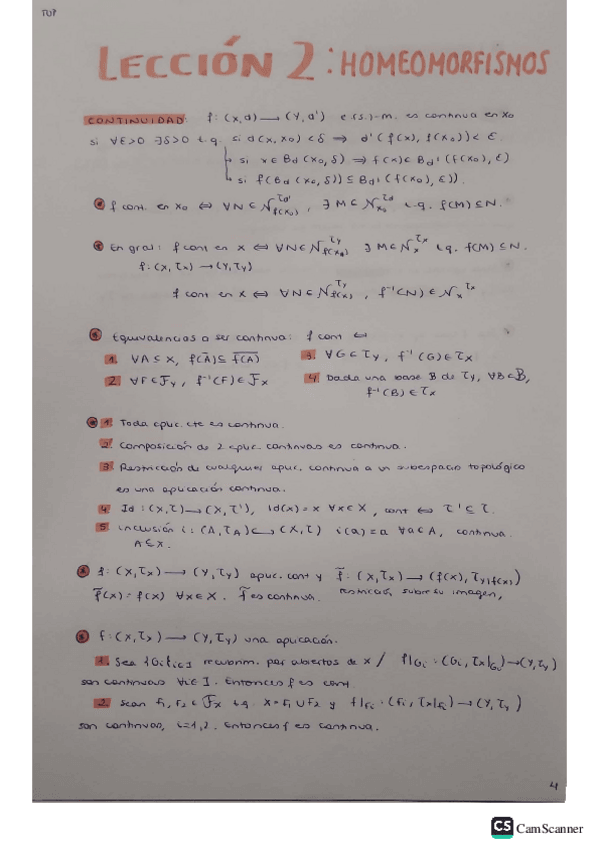 TOP
LECCIÓN 2: HOMEOMORFISMOS
CONTINUIDAD: f: (X,d) ⟶ (Y,d') e.(s.)-m. es continua en x₀
si ∀ε>0 ∃δ>0 t.q. si d(x,x₀)<δ ⟹ d'(f(x), f(x₀))<ε.
si x∈B_d(x₀,δ) ⟹ f(x)∈B_d'(f(x₀),ε)
si f(B_d(x₀,δ))⊆B_d'(f(x₀),ε)).
f cont. en x₀ ⟺ ∀N∈𝒩_{f(x₀)}^{τ_d'}, ∃M∈𝒩_{x₀}^{τ_d} t.q. f(M)⊆N.
En gral: f cont en x ⟺ ∀N∈𝒩_{f(x₀)}^{τ_Y} ∃M∈𝒩_x^{τ_X} t.q. f(M)⊆N.
f: (X,τ_X) → (Y,τ_Y)
f cont en x ⟺ ∀N∈𝒩_{f(x)}^{τ_Y}, f⁻¹(N)∈𝒩_x^{τ_X}
Equivalencias a ser continua: f cont ⟺
1. ∀A⊆X, f(A̅)⊆f(A)̅ 3. ∀G∈τ_Y, f⁻¹(G)∈τ_X
2. ∀F∈ℱ_Y, f⁻¹(F)∈ℱ_X 4. Dada una base B de τ_Y, ∀B∈B,
f⁻¹(B)∈τ_X
1. Toda aplic. cte es continua.
2. Composición de 2 aplic. continuas es continua.
3. Restricción de cualquier aplic. continua a un subespacio topológico
es una aplicación continua.
4. Id: (X,τ)⟶(X,τ'), Id(x)=x ∀x∈X, cont ⟺ τ'⊆τ.
5. inclusión i: (A,τ_A)↪(X,τ) i(a)=a ∀a∈A, continua.
A⊆X.
f: (X,τ_X) ⟶ (Y,τ_Y) aplic. cont y f̃: (X,τ_X) ⟶ (f(X),τ_Y|f(X))
f̃(x)=f(x) ∀x∈X. f̃ es continua. restricción sobre su imagen,
f: (X,τ_X) ⟶ (Y,τ_Y) una aplicación.
1. Sea {Gᵢ}ᵢ∈I recubrim. por abiertos de X / f|Gᵢ: (Gᵢ,τ_X|Gᵢ)→(Y,τ_Y)
son continuas ∀i∈I. Entonces f es cont.
2. Sean F₁,F₂∈ℱ_X t.q. X=F₁∪F₂ y f|Fᵢ: (Fᵢ,τ_X|Fᵢ)→(Y,τ_Y)
son continuas, i=1,2. Entonces f es continua.
4
CS CamScanner